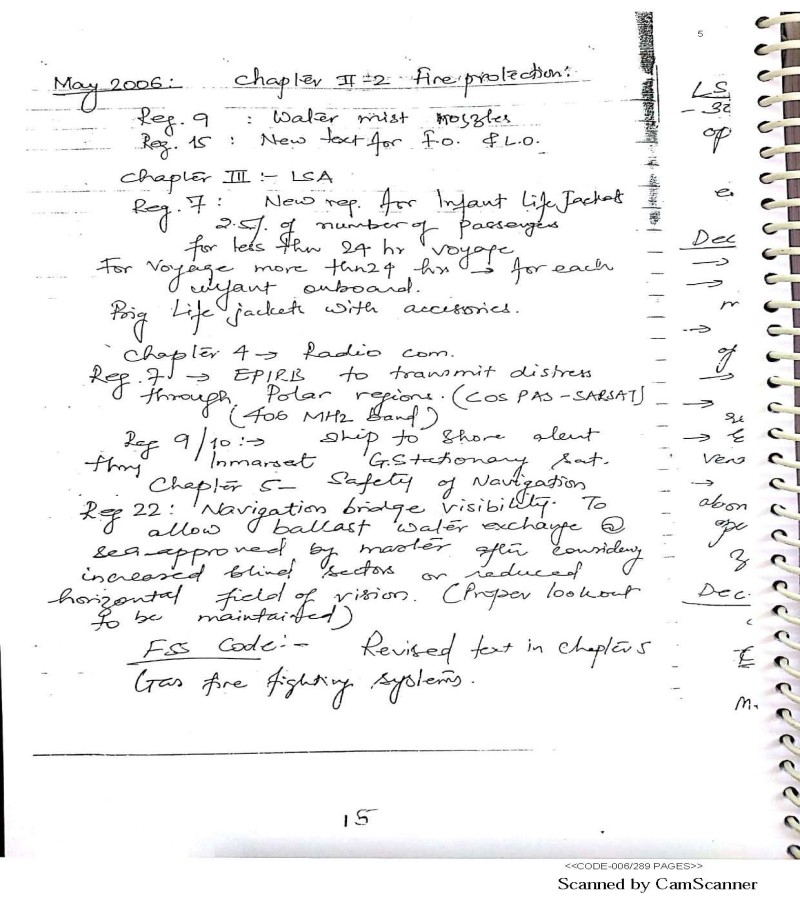 5
May 2006: Chapter II-2 Fire protection:
Reg. 9 : Water mist nozzles
Reg. 15 : New text for F.O. & L.O.
Chapter III :- LSA
Reg. 7 : New rep. for Infant Life Jackets
2.5% of number of passengers
for less thn 24 hr voyage
For voyage more thn 24 hrs → for each
infant onboard.
Life jackets with accessories.
Chapter 4 → Radio com.
Reg. 7 → EPIRB to transmit distress
through Polar regions. (COSPAS-SARSAT)
(406 MHz Band)
Reg 9/10 :→ Ship to Shore alert
thru Inmarset G.Stationary Sat.
Chapter 5- Safety of Navigation
Reg 22: Navigation bridge visibility. To
allow ballast water exchange @
sea-approved by master after considering
increased blind sectors or reduced
horizontal field of vision. (Proper lookout
to be maintained)
FSS Code:- Revised text in chapter 5
Gas fire fighting systems.
15
LS
op
Dec
→
→
→
of
→
→
→
vers
→
Dec.
<<CODE-006/289 PAGES>>
Scanned by CamScanner